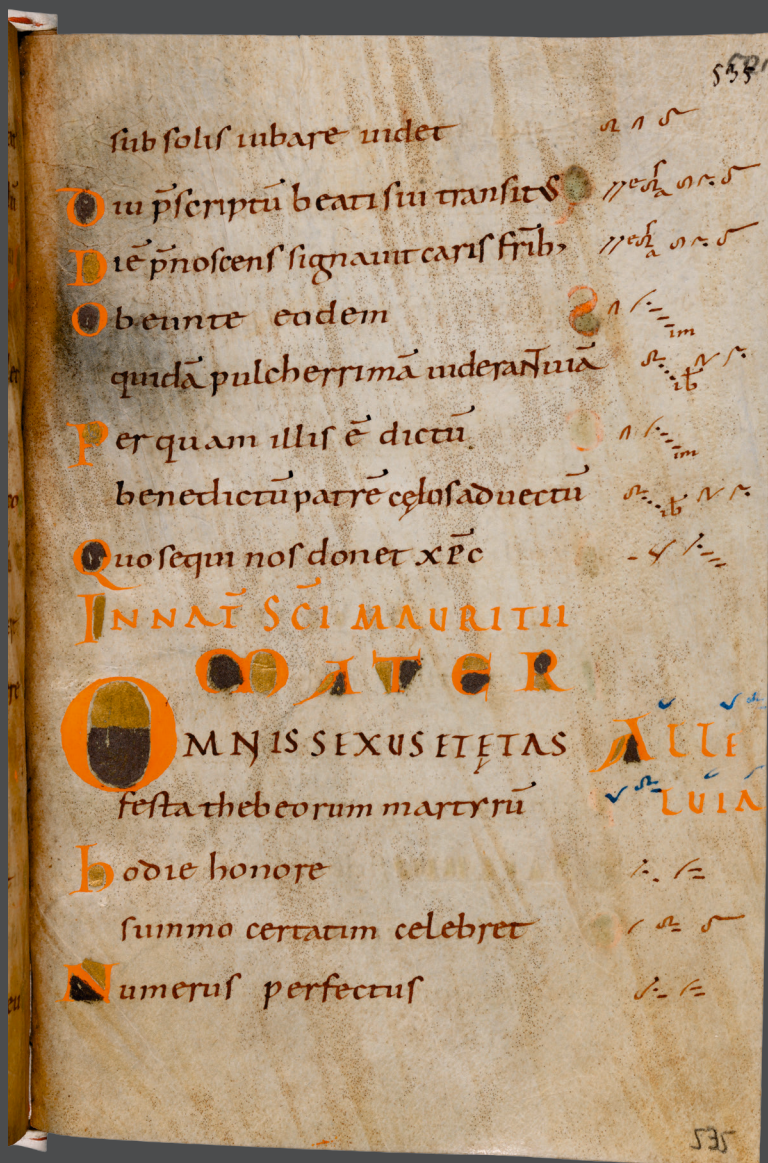 535
sub solis iubare uidet
Diu p̄scriptū beati sui transitꝰ
Diē p̄noscens signauit caris frīb;
Obeunte eodem
im
quidā pulcherrimā uiderant uiā
ib
Per quam illis ē dictū
im
benedictū patrē cęlos aduectū
ib
Quo sequi nos donet xp̄c
IN NAT̄ SC̄I MAURITII
MATER
OMNIS SEXUS ET ĘTAS ALLE
festa thebeorum martyrū LUIA
hodie honore
summo certatim celebret
Numerus perfectus
535